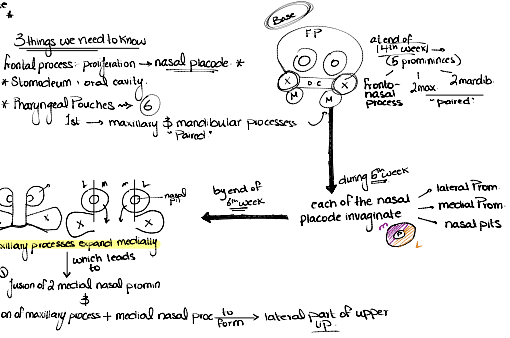 Base
3 things we need to know
frontal process: proliferation → nasal placode. *
* Stomodeum : oral cavity.
* Pharyngeal Pouches → 6
1st → maxillary $ mandibular processess
"Paired"
FP
OC
X
X
M
M
at end of
(4th week) →
(5 promininces)
fronto-
nasal
process
2max.
2mardib.
"paired"
during 5th week
each of the nasal
placode invaginate
lateral Prom.
medial Prom.
nasal pits
m
L
by end of
6th week
L
m
m
L
nasal
pit
X
X
X
X
xillary processes expand medially
which leads
to
fusion of 2 medial nasal promin
$
on of maxillary process + medial nasal proc to form → lateral part of upper
lip.